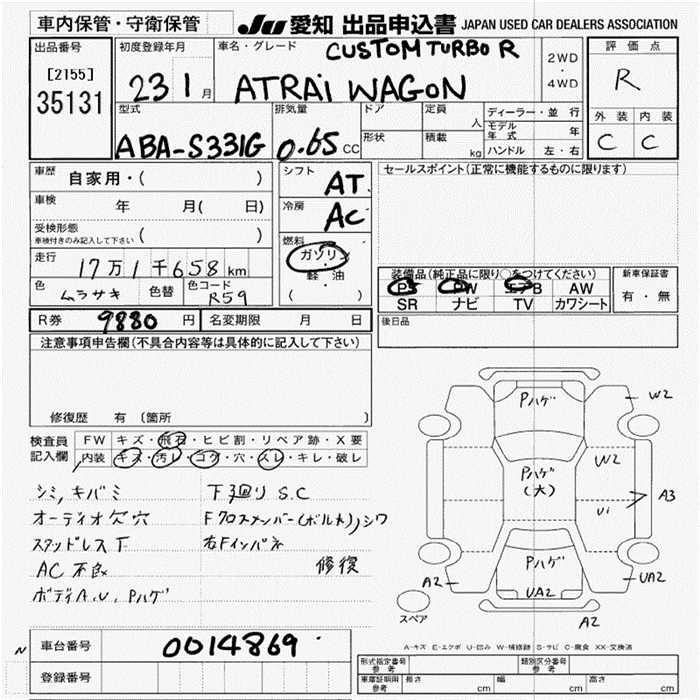 車内保管・守衛保管
JU 愛知 出品申込書 JAPAN USED CAR DEALERS ASSOCIATION
出品番号
[2155]
35131
初度登録年月
23 1月
車名・グレード
CUSTOM TURBO R
ATRAi WAGON
2WD
・
4WD
評価点
R
外装 内装
C C
型式
ABA-S331G
排気量
0.65 CC
ドア
形状
定員
人
積載
kg
ディーラー・並行
モデル年式 年
ハンドル 左・右
車歴 自家用・( )
車検 年 月( 日)
受検形態
車検付きのみ記入して下さい ( )
走行 17万1千658km
色 ムラサキ 色替 色コード R59
シフト
AT
冷房
AC
燃料
ガソリン
・
軽油
( )
セールスポイント(正常に機能するものに限ります)
装備品(純正品に限り○をつけてください)
PS PW エアB AW
SR ナビ TV カワシート
新車保証書
有・無
R券 9880 円 名変期限 月 日
後日品
注意事項申告欄(不具合内容等は具体的に記入して下さい)
修復歴 有(箇所
検査員記入欄
FW キズ・飛石・ヒビ割・リペア跡・X要
内装 キズ・汚レ・コゲ・穴・スレ・キレ・破レ
シミ,キバミ
オーディオ欠穴
スタッドレス下
AC 不良
ボディA.U.Pハゲ
下廻りS.C
Fクロスメンバー(ボルト),シワ
右Fインパネ
修復
Pハゲ
W2
W2
Pハゲ
(大)
Ui
A3
Pハゲ
UA2
A2
UA2
A2
スペア
A-キズ E-エクボ U-凹み W-補修跡 S-サビ C-腐食 XX-交換済
N
車台番号 0014869
登録番号
形式指定番号
参考
類別区分番号
参考
車庫証明用
参考
長さ cm 幅 cm 高さ cm